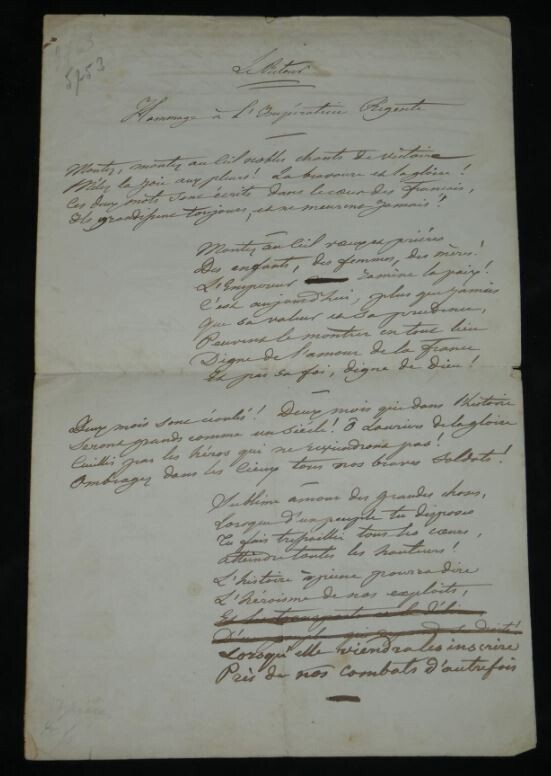 5253
Le Retour
Hommage à L'Impératrice Régente
Montez, montez au Ciel nobles chants de victoire
Mêlez la joie aux pleurs! La bravoure et la gloire!
Ces deux mots sont écrits dans le cœur des français,
Ils grandissent toujours, et ne meurent jamais!
Montez au Ciel vœux et prières
Des enfants, des femmes, des mères!
L'Empereur ramène la paix!
C'est aujourd'hui, plus que jamais
Que sa valeur et sa prudence,
Peuvent le montrer en tout lieu
Digne de l'amour de la France
Et par sa foi, digne de Dieu!
Deux mois sont écoulés! Deux mois qui dans l'histoire
Seront grands comme un siècle! Ô Lauriers de la gloire
Cueillis par les héros qui ne reviendront pas!
Ombragez dans les Cieux tous nos braves soldats!
Sublime amour des grandes choses,
Lorsque d'un peuple tu disposes
Tu fais tressaillir tous les cœurs,
Atteindre toutes les hauteurs!
L'histoire à peine pourra dire
L'héroïsme de nos exploits,
Et les
Lorsqu'elle viendra les inscrire
Près de nos combats d'autrefois